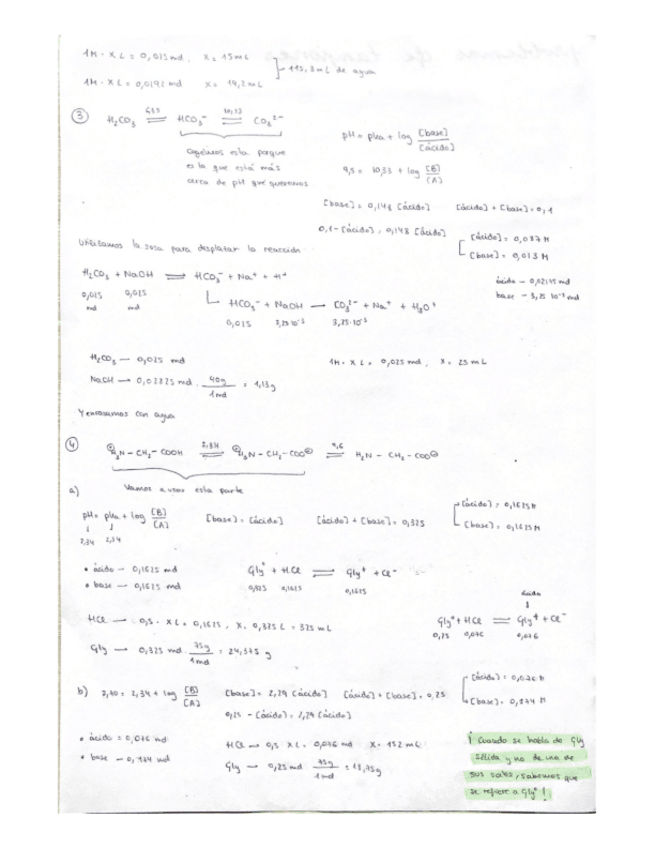 1M · x L = 0,015 mol. x = 15 mL
115,8 mL de agua
1M · x L = 0,0192 mol x = 19,2 mL
③ H₂CO₃ ⇌ HCO₃⁻ ⇌ CO₃²⁻
10,33
Cogemos esta porque
es la que está más
cerca de pH que queremos
pH = pka + log [base]/[ácido]
9,5 = 10,33 + log [B]/[A]
[base] = 0,148 [ácido] [ácido] + [base] = 0,1
0,1 - [ácido] = 0,148 [ácido]
[ácido] = 0,087 M
[base] = 0,013 M
Utilizamos la sosa para desplazar la reacción
H₂CO₃ + NaOH ⇌ HCO₃⁻ + Na⁺ + H⁺
0,025 0,025
mol mol
ácido - 0,02175 mol
base - 3,25·10⁻³ mol
HCO₃⁻ + NaOH → CO₃²⁻ + Na⁺ + H₃O⁺
0,025 3,25·10⁻³ 3,25·10⁻³
H₂CO₃ → 0,025 mol
1M · x L = 0,025 mol, x = 25 mL
NaOH → 0,02825 mol · 40g/1mol = 1,13g
Y enrasamos con agua
④ ⊕H₃N - CH₂ - COOH ⇌ ⊕H₃N - CH₂ - COO⊖ ⇌ H₂N - CH₂ - COO⊖
2,34 9,6
Vamos a usar esta parte
a)
pH = pka + log [B]/[A] [base] = [ácido] [ácido] + [base] = 0,325
2,34 2,34
[ácido] = 0,1625 M
[base] = 0,1625 M
• ácido → 0,1625 mol
• base → 0,1625 mol
Gly± + HCl ⇌ Gly⁺ + Cl⁻
0,325 0,1625 0,1625
HCl → 0,5 · x L = 0,1625, x = 0,325 L = 325 mL
Gly → 0,325 mol · 75g/1mol = 24,375 g
ácido
Gly± + HCl ⇌ Gly⁺ + Cl⁻
0,25 0,076 0,076
b) 2,70 = 2,34 + log [B]/[A] [base] = 2,29 [ácido] [ácido] + [base] = 0,25
0,25 - [ácido] = 2,29 [ácido]
[ácido] = 0,076 M
[base] = 0,174 M
• ácido = 0,076 mol
• base → 0,174 mol
HCl → 0,5 x L = 0,076 mol x = 152 mL
Gly → 0,25 mol 75g/1mol = 18,75g
¡ Cuando se habla de Gly
sólida y no de una de
sus sales, sabemos que
se refiere a Gly± !